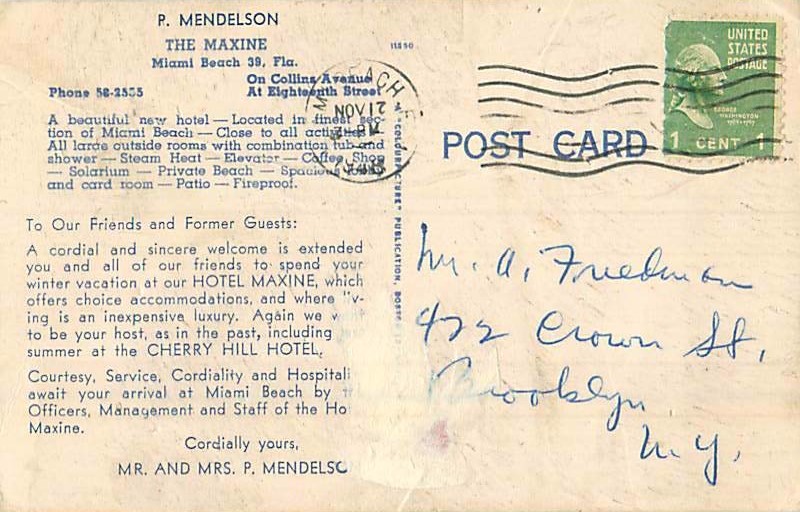 P. MENDELSON
THE MAXINE
Miami Beach 39, Fla.
On Collins Avenue
Phone 58-2555 At Eighteenth Street
A beautiful new hotel — Located in finest sec-
tion of Miami Beach — Close to all
All large outside rooms with combination tub and
shower — Steam Heat — Elevator — Coffee Shop
— Solarium — Private Beach — Spacious
and card room — Patio — Fireproof.
To Our Friends and Former Guests:
A cordial and sincere welcome is extended
you and all of our friends to spend your
winter vacation at our HOTEL MAXINE, which
offers choice accommodations, and where
ing is an inexpensive luxury. Again we
to be your host, as in the past, including
summer at the CHERRY HILL HOTEL.
Courtesy, Service, Cordiality and Hospitali
await your arrival at Miami Beach by
Officers, Management and Staff of the Ho
Maxine.
Cordially yours,
MR. AND MRS. P. MENDELSON
PUBLICATION,
NOV 21
POST CARD
UNITED
STATES
POSTAGE
GEORGE
WASHINGTON
1 CENT 1
Mr. A. Friedman
422 Crown St,
Brooklyn
N.Y.